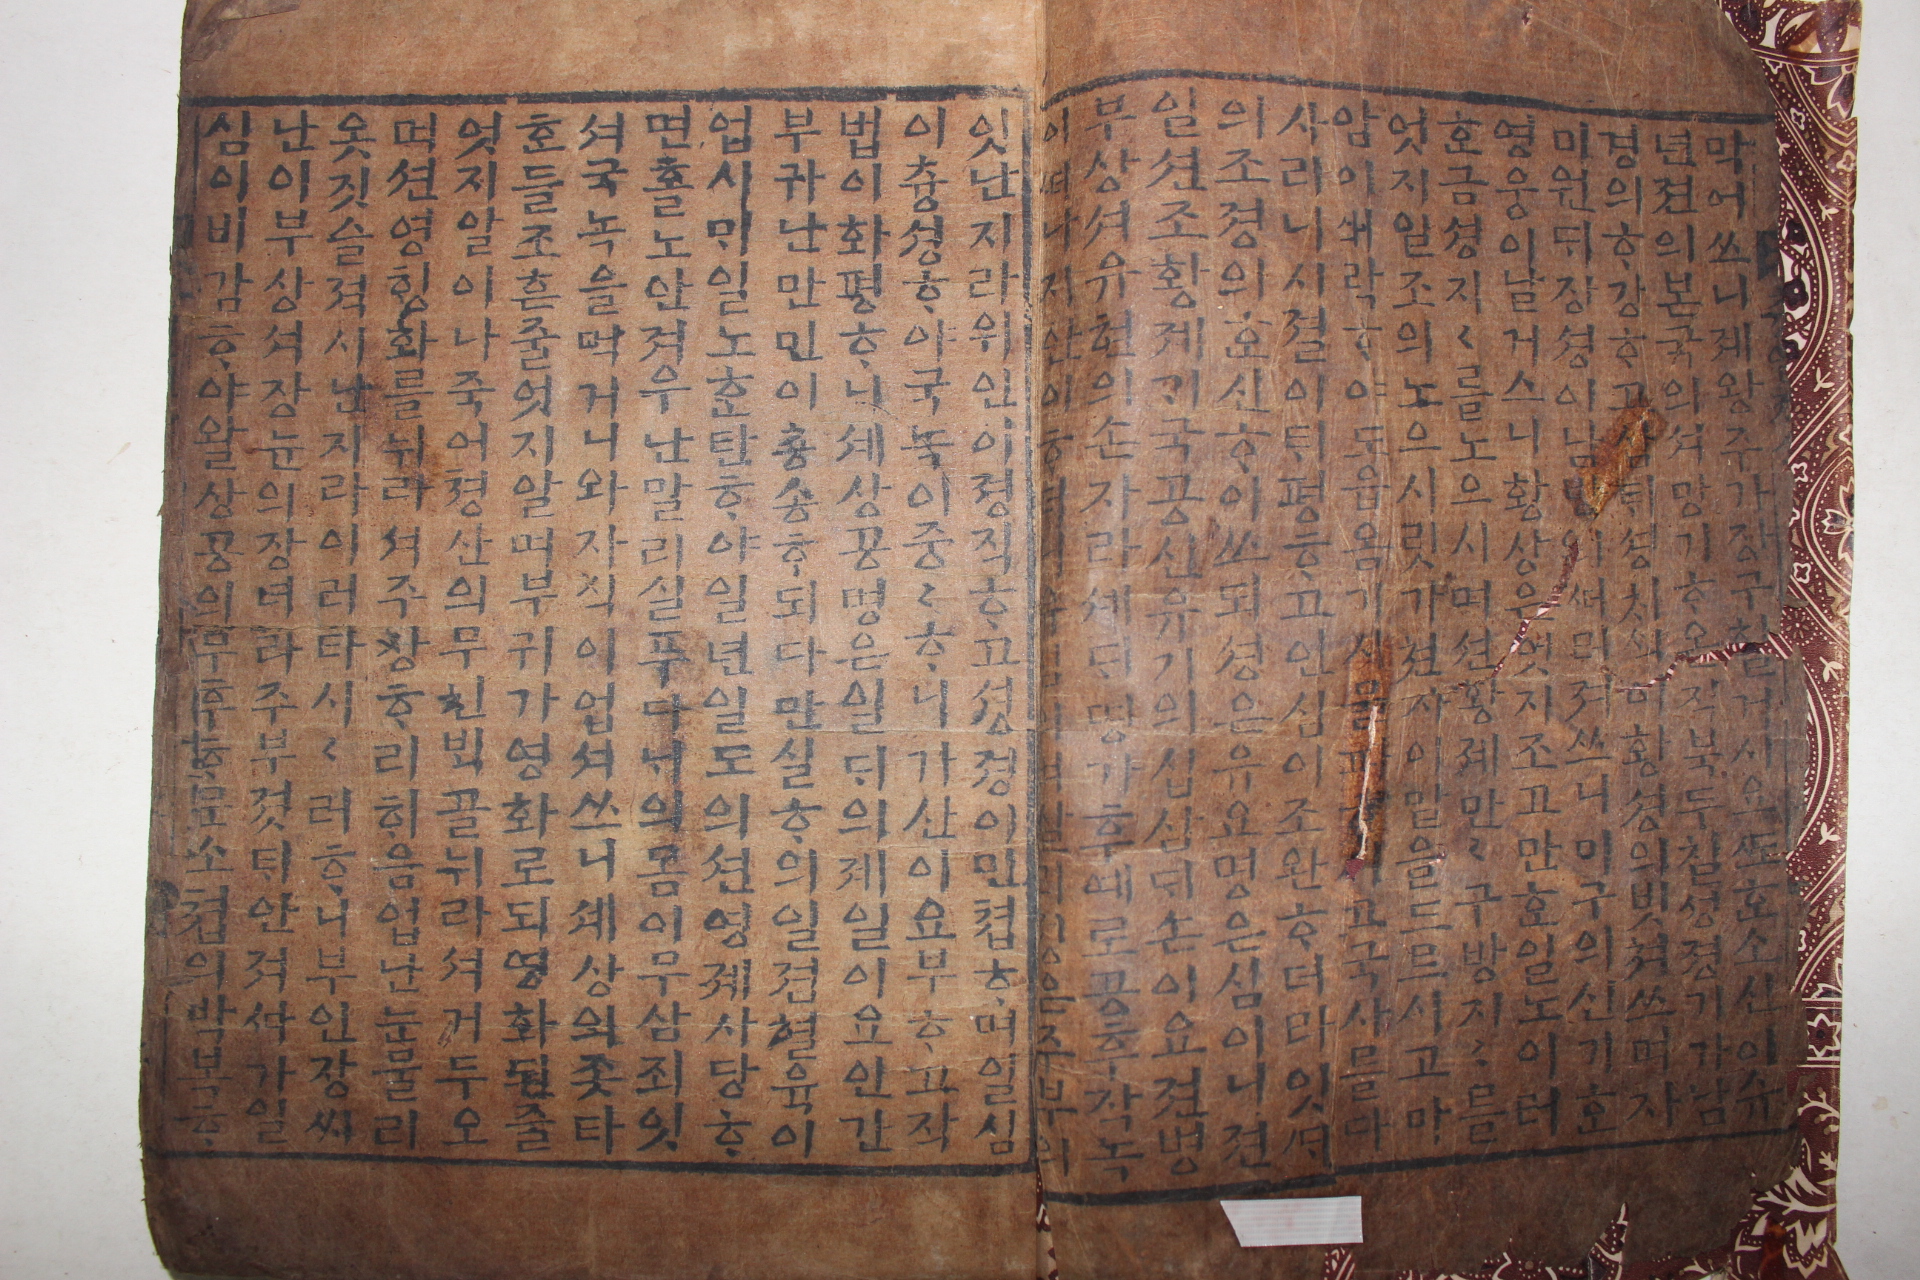 막어쓰니제왕주가장구헐거시요또호소신이슈
년젼의본국의셔망기ᄒᆞ오직북두칠셩졍기가남
경의ᄒᆞ강ᄒᆞ고삼ᄐᆡ셩황셩의빗쳐쓰며자
미원ᄃᆡ장셩이남방의써러져쓰니미구의신기호
영웅이날거스니황상은엇지조고만호일노이러
호금셩지〻를노으시며션황졔만〻구방지〻를
엇지일조의노으시릿가쳔자이말을드르시고마
암이쇄락ᄒᆞ야도읍옴기고국사를다
사리니시졀이ᄐᆡ평등고인심이조완ᄒᆞ더라잇셔
의조졍의호신ᄒᆞ이쓰되셩은유요명은심이니젼
일션조황졔ᄀᆡ국공신유기의십삼ᄃᆡ손이요젼병
부상셔유현의손자라셰ᄃᆡ명가후예로공후작녹
이떠나지안이ᄒᆞ더은주부의
잇난지라위인이졍직ᄒᆞ고셩졍이민쳡ᄒᆞ며일심
이츙셩ᄒᆞ야국녹이중〻ᄒᆞ니가산이요부ᄒᆞ고작
법이화평ᄒᆞ니셰상공명은일ᄃᆡ의졔일이요인간
부귀난만민이충송ᄒᆞ되다만실ᄒᆞ의일졈혈육이
업시ᄆᆡ일노호탄ᄒᆞ야일년일도의션영졔사당ᄒᆞ
면홀노안져우난말리실푸다ᄂᆡ의몸이무삼죄잇
셔국녹을먹거니와자식이업셔쓰니셰상의좃타
호들조흔줄엇지알며부귀가영화로되영화된줄
엇지알이나죽어쳥산의무친ᄇᆡᆨ골뉘라셔거두오
며션영ᄒᆡᆼ화를뉘라셔주창ᄒᆞ리ᄒᆡ음업난눈물리
옷깃슬젹시난지라이러타시〻러ᄒᆞ니부인장씨
난이부상셔장눈의장녀라주부겻ᄐᆡ안져싸가일
심이비감ᄒᆞ야왈상공의무후ᄒᆞ믄소쳡의박복ᄒᆞ